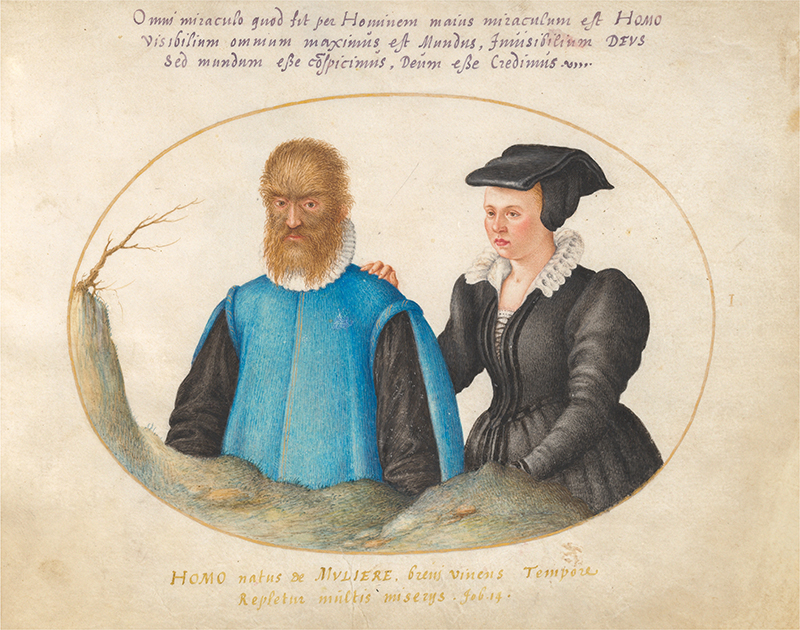 Omni miraculo quod fit per Hominem maius miraculum est HOMO
Visibilium omnium maximus est Mundus, Invisibilium DEVS
Sed mundum eße cōspicimus, Deum eße Credimus
I
HOMO natus de MVLIERE. brevi vivens Tempore
Repletur multis miserijs. Job. 14.